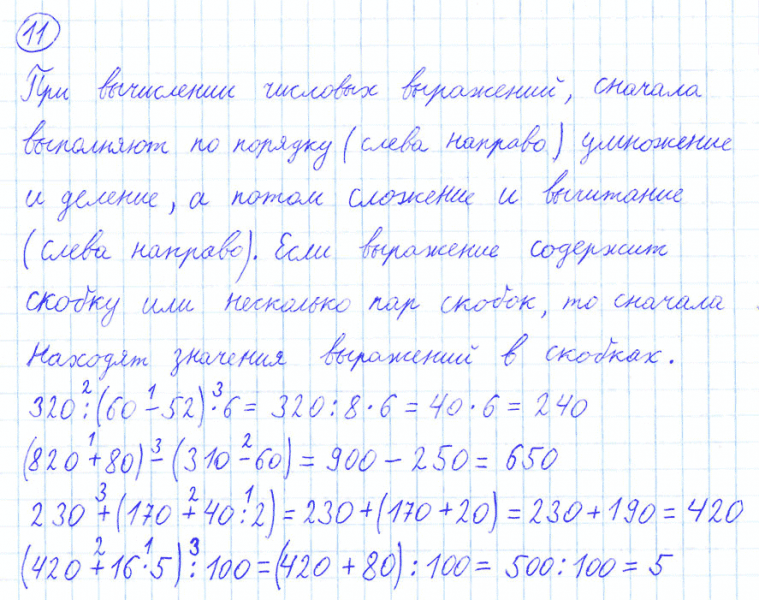 11
При вычислении числовых выражений, сначала
выполняют по порядку (слева направо) умножение
и деление, а потом сложение и вычитание
(слева направо). Если выражение содержит
скобку или несколько пар скобок, то сначала
находят значения выражений в скобках.
2 1 3
320 : (60 - 52) · 6 = 320 : 8 · 6 = 40 · 6 = 240
1 3 2
(820 + 80) - (310 - 60) = 900 - 250 = 650
3 2 1
230 + (170 + 40 : 2) = 230 + (170 + 20) = 230 + 190 = 420
2 1 3
(420 + 16 · 5) : 100 = (420 + 80) : 100 = 500 : 100 = 5